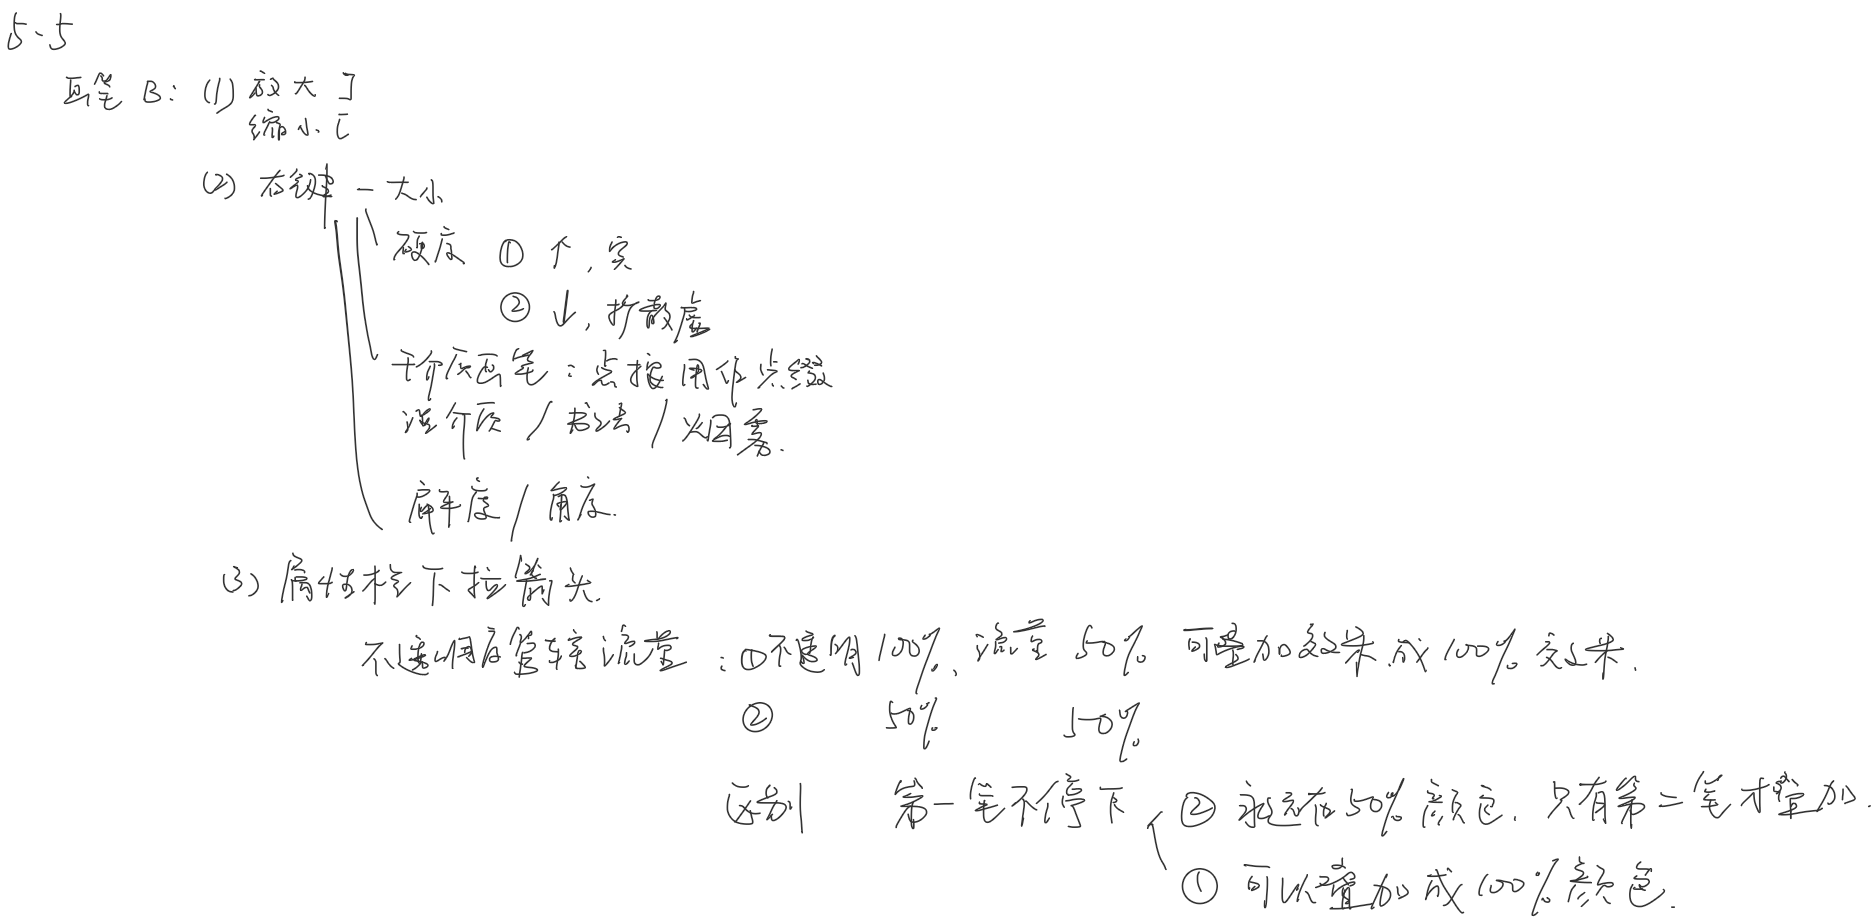 5.5
画笔 B: (1) 放大 ]
缩小 [
(2) 右键 - 大小
硬度 ① ↑, 实
② ↓, 扩散虚
干介质画笔: 点按 用作点缀
湿介质 / 书法 / 烟雾.
扁平度 / 角度.
(3) 属性栏下拉箭头.
不透明度管辖流量: ①不透明100%, 流量 50% 可叠加效果,成100%效果.
② 50% 50%
区别 第一笔不停下 ② 永远在50%颜色. 只有第二笔才叠加.
① 可以叠加成100%颜色.